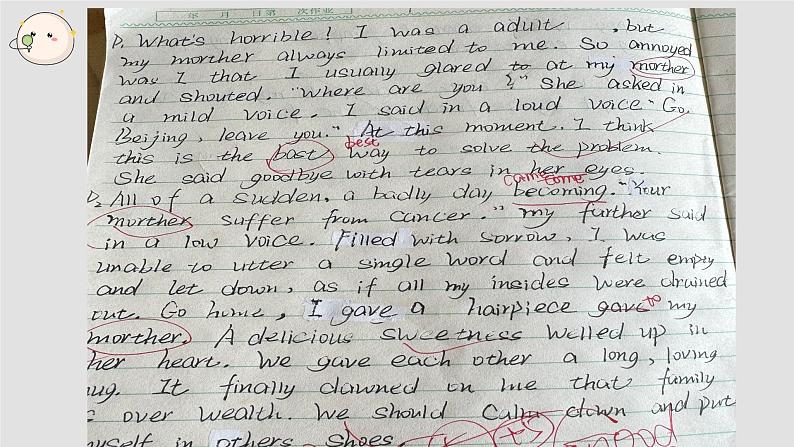 年 月 日 第 次作业
P. What's horrible! I was a adult , but
my morther always limited to me. So annoyed
was I that I usually glared to at my morther
and shouted. "Where are you ?" She asked in
a mild voice. I said in a loud voice "Go,
Beijing, leave you." At this moment. I think
best
this is the bast way to solve the problem.
She said goodbye with tears in her eyes.
came come
P2 All of a sudden, a badly day becoming. "Your
murther suffer from cancer." my further said
in a low voice. Filled with sorrow, I was
unable to utter a single word and felt empty
and let down, as if all my insides were drained
out. Go home, I gave a hairpiece gave to my
morther. A delicious sweetness welled up in
her heart. We gave each other a long, loving
hug. It finally dawned on me that family
over wealth. We should calm down and put
myself in others shoes.